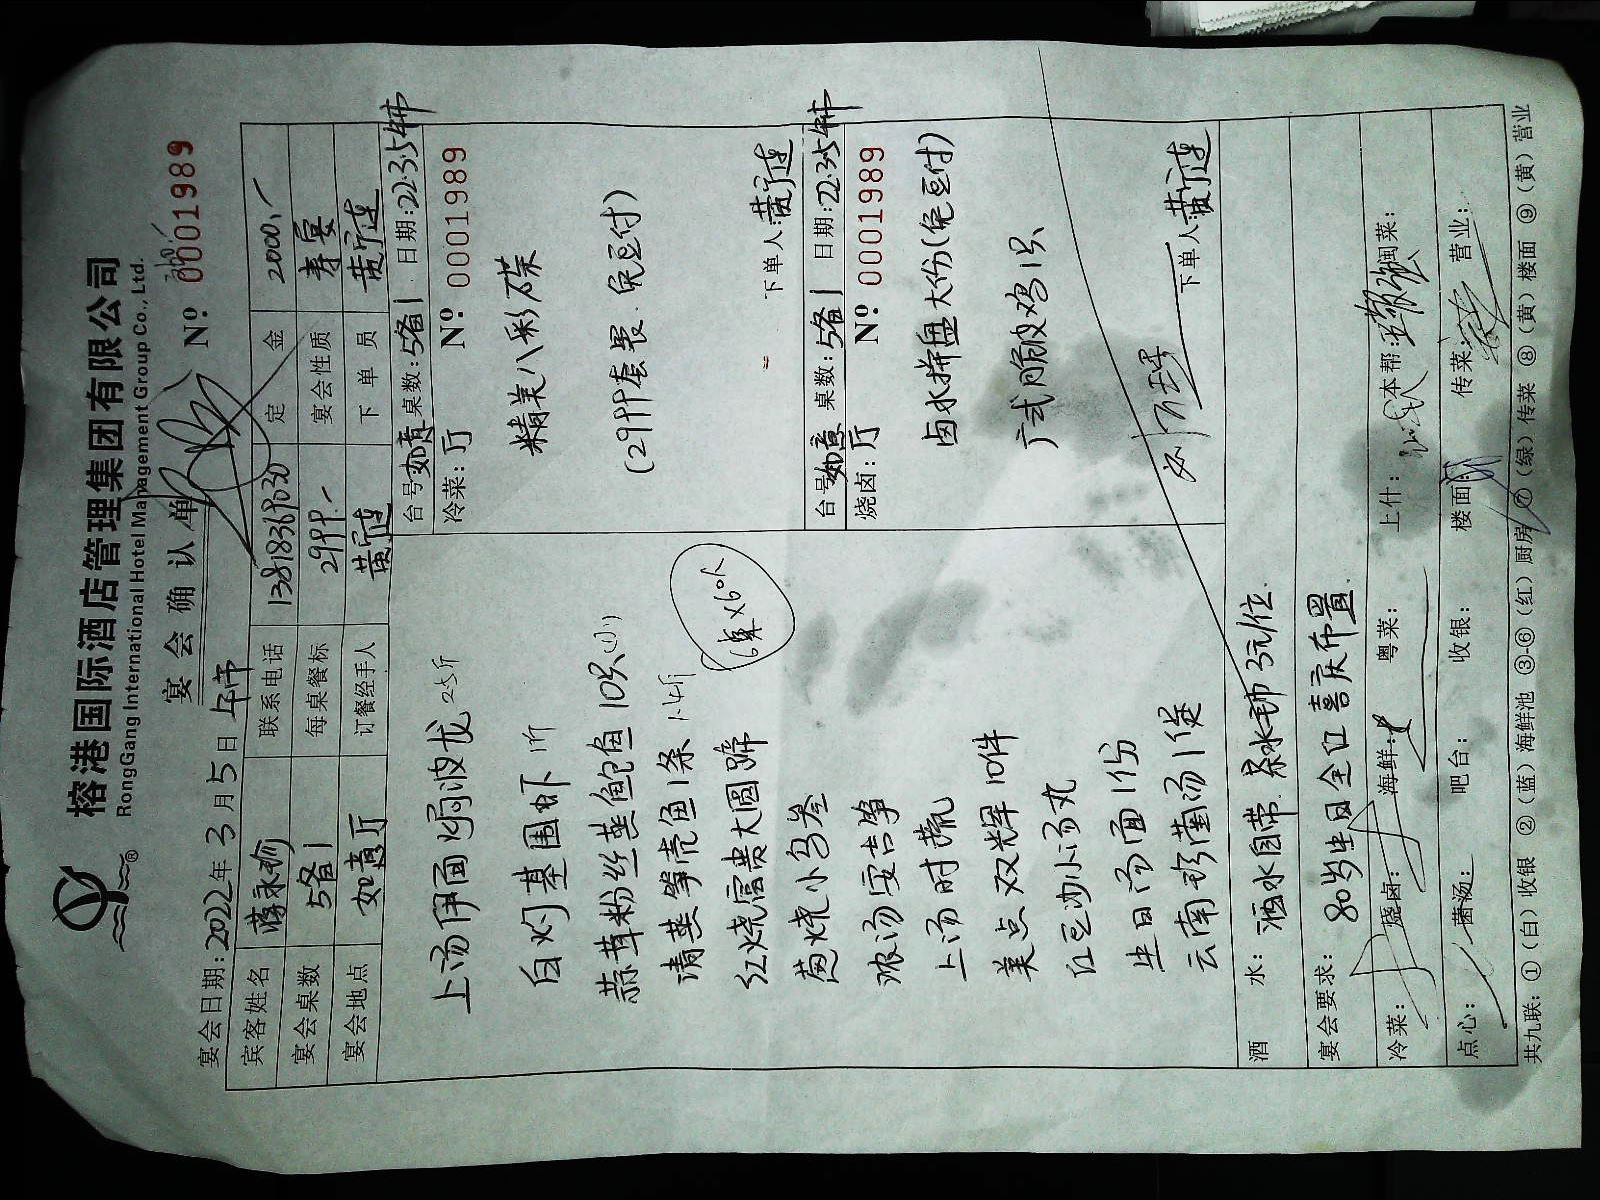 榕港国际酒店管理集团有限公司
RongGang International Hotel Management Group Co., Ltd.
宴会确认单
Nº 0001989
宴会日期: 2022年3月5日 午市
宾客姓名 蒋永珍 联系电话 定金 2000.-
宴会桌数 5备1 每桌餐标 2999.- 宴会性质 寿宴
宴会地点 如意厅 订餐经手人 黄 下单员 黄
上汤伊面焗波龙 2.5斤
白灼基围虾 1斤
蒜茸粉丝蒸鲍鱼 10只(小)
清蒸笋壳鱼1条 1.4斤
红烧富贵大圆蹄
葱烧小乌参
浓汤安吉笋
上汤时蔬
美点双辉 10件
红豆沙小汤丸
生日汤面1份
云南野菌汤1煲
6桌×60人
台号 如意厅 桌数: 5备1 日期: 22.3.5午市
冷菜: Nº 0001989
精美八彩碟
(2999套餐. 免豆付)
下单人 黄
台号 如意厅 桌数: 5备1 日期: 22.3.5午市
烧卤: Nº 0001989
卤水拼盘大份(免豆付)
广式脆皮鸡1只
下单人 黄
酒水: 酒水自带. 茶水毛巾 3元/位.
宴会要求: 80岁生日宴 喜庆布置.
冷菜: 烧卤: 海鲜: 粤菜: 上什: 本帮: 闽菜:
点心: 菌汤: 吧台: 收银: 楼面: 传菜: 营业:
共九联: ①(白)收银 ②(蓝)海鲜池 ③-⑥(红)厨房 ⑦(绿)传菜 ⑧(黄)楼面 ⑨(黄)营业